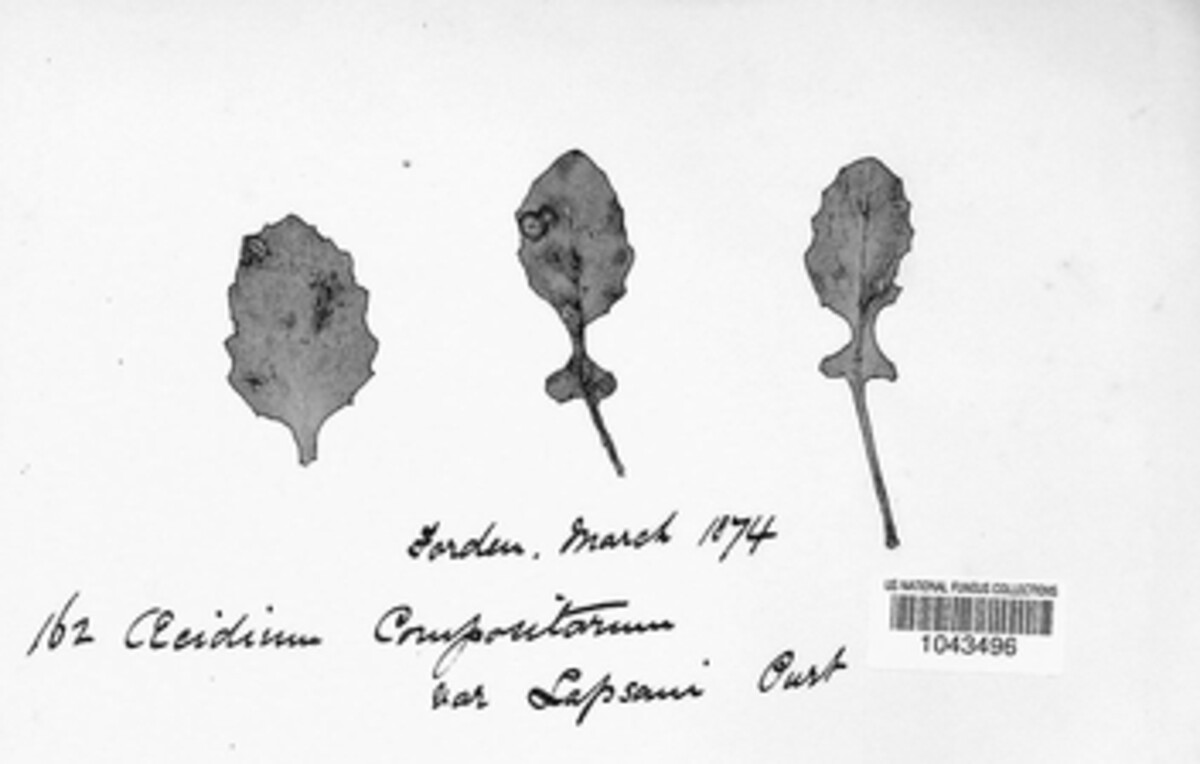 Forden. March 1874
162 Œcidium Compositarum
var Lapsani Purt
US NATIONAL FUNGUS COLLECTIONS
1043496